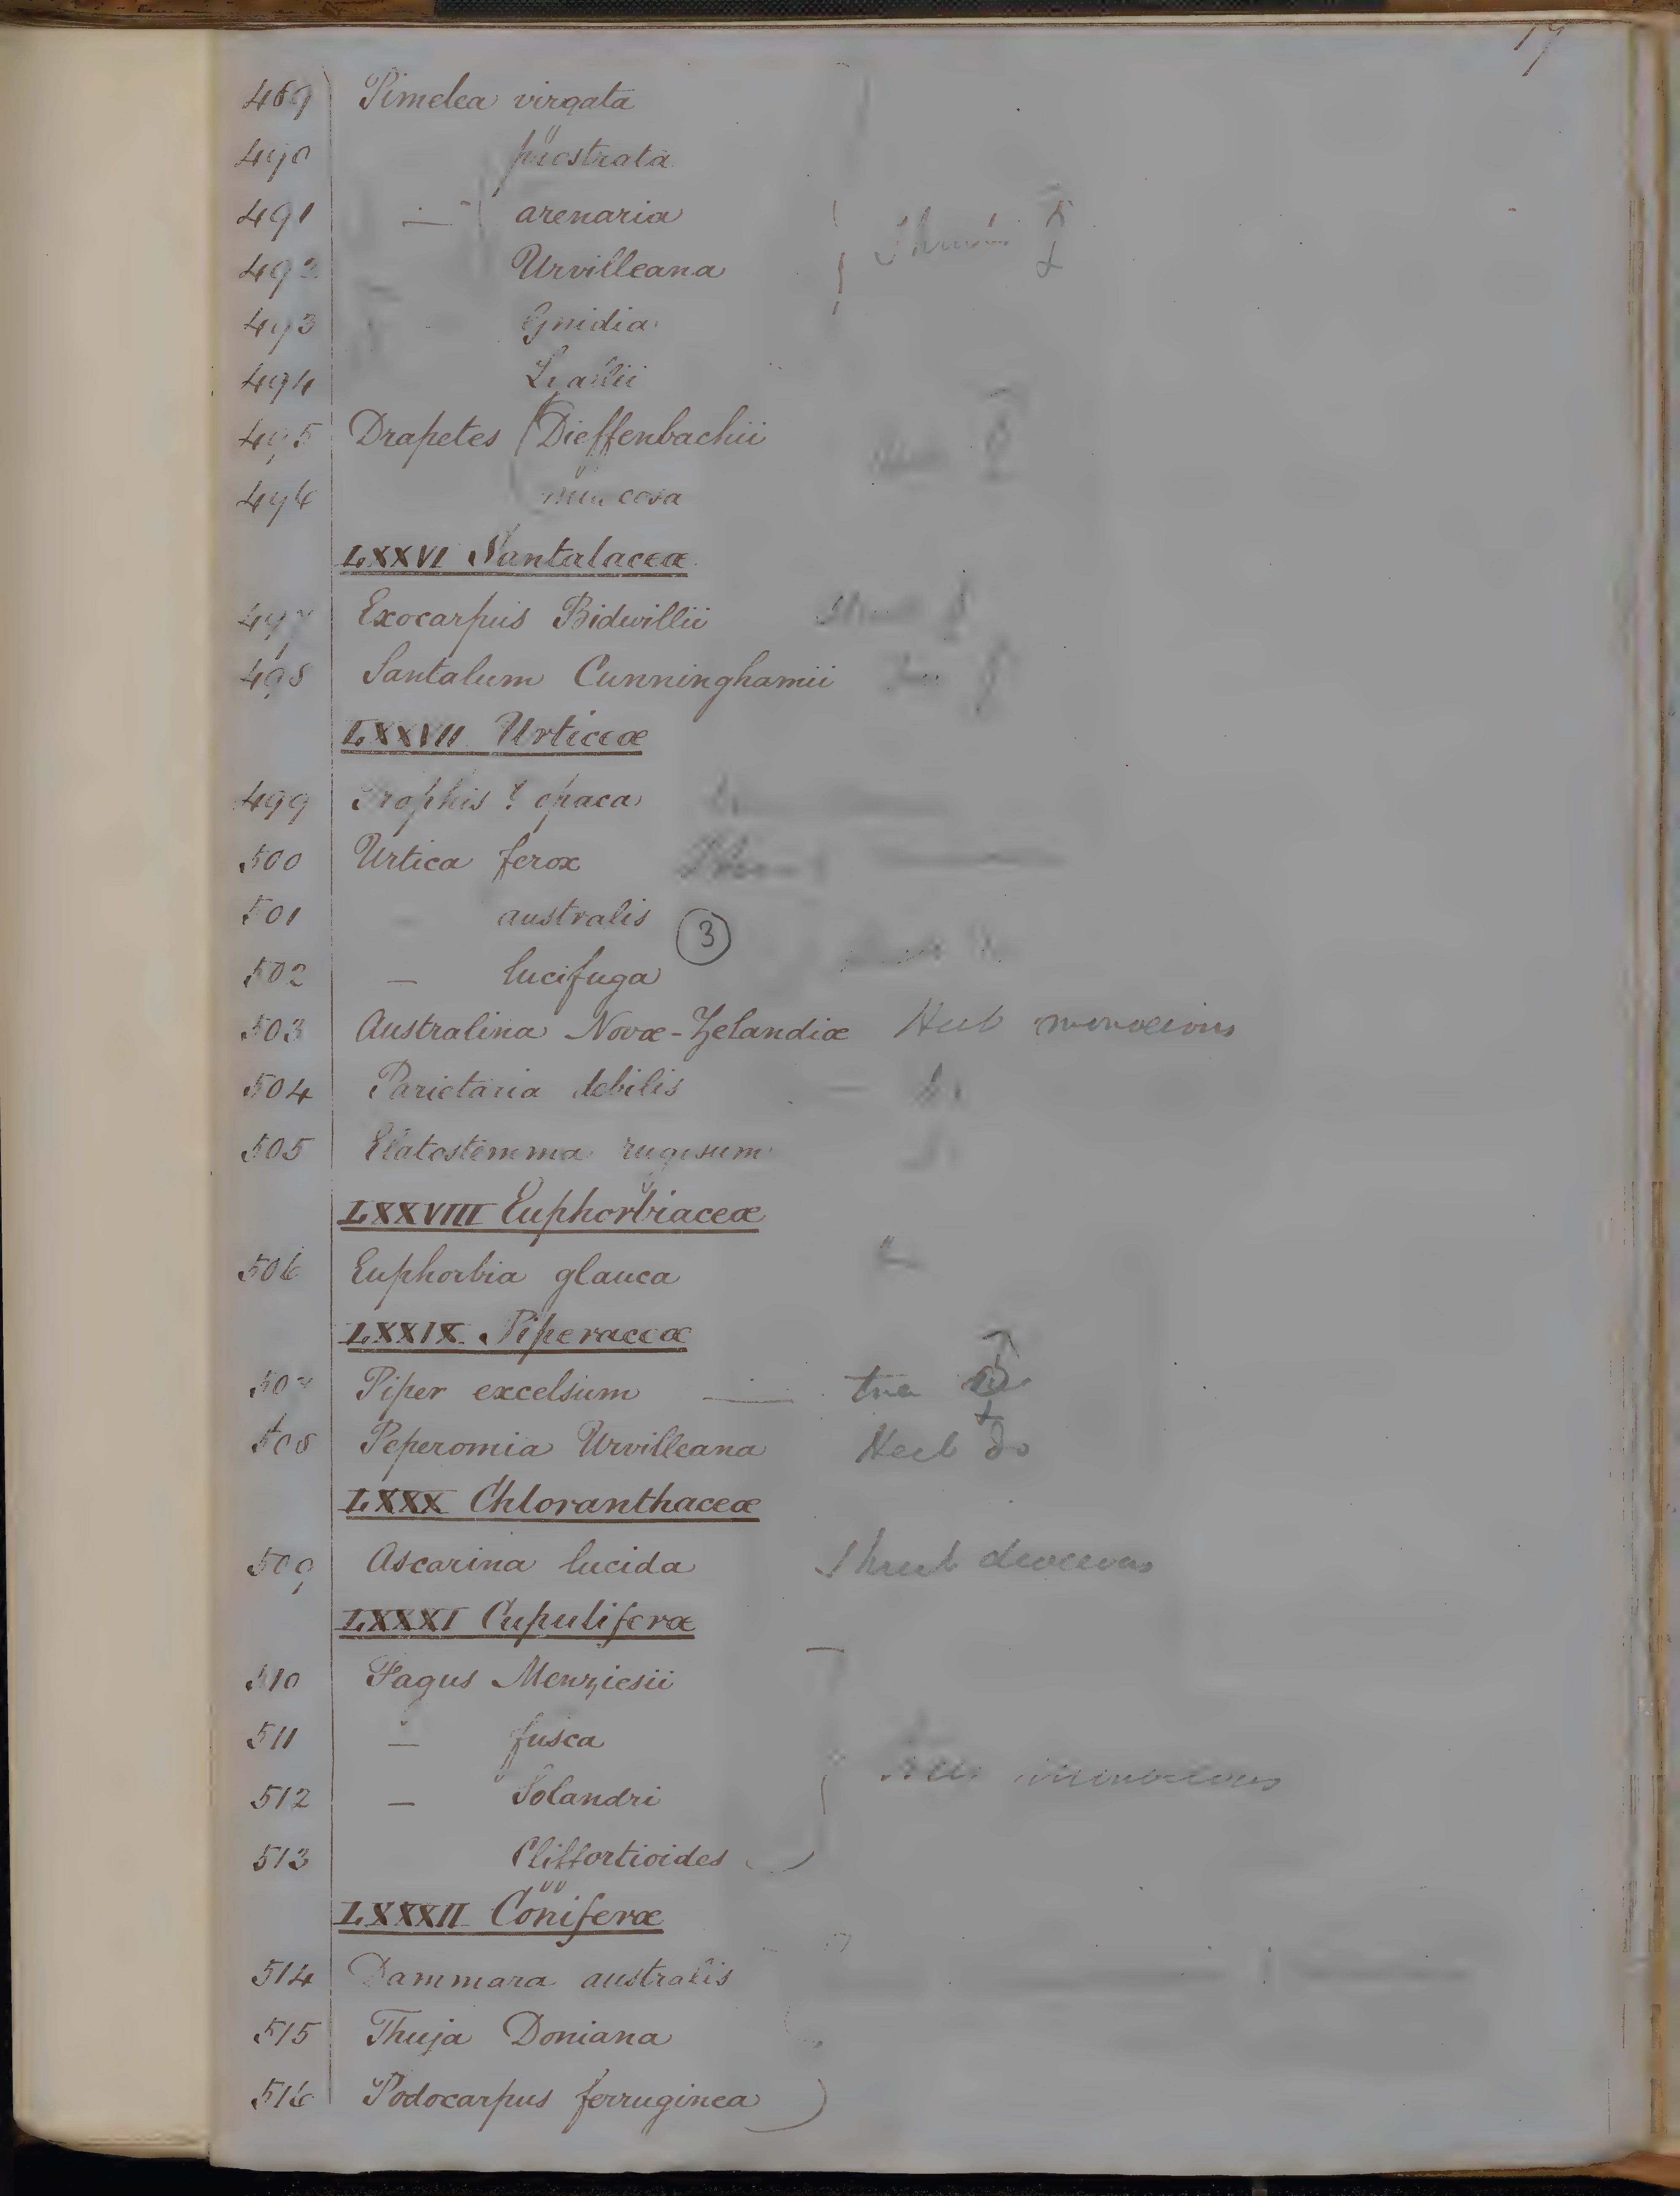 19
469 Pimelea virgata
490 prostrata
491 — arenaria
492 Urvilleana Shrub ⚥
493 Gnidia
494 Lyallii
495 Drapetes Dieffenbachii
496 muscosa
LXXVI Santalaceæ
497 Exocarpus Bidwillii Shrub
498 Santalum Cunninghamii
LXXVII Urticeæ
499 Trophis ? opaca
500 Urtica ferox Shrub
501 australis
3
502 — lucifuga
503 Australina Novæ-Zelandiæ Herb monoecious
504 Parietaria debilis —
505 Elatostemma rugosum
LXXVIII Euphorbiaceæ
506 Euphorbia glauca
LXXIX Piperaceæ
507 Piper excelsum — tree ⚥
508 Peperomia Urvilleana Herb do
LXXX Chloranthaceæ
509 Ascarina lucida Shrub dioecious
LXXXI Cupuliferæ
510 Fagus Menziesii
511 — fusca
512 — Solandri Trees monoecious
513 Cliffortioides
LXXXII Coniferæ
514 Dammara australis
515 Thuja Doniana
516 Podocarpus ferruginea